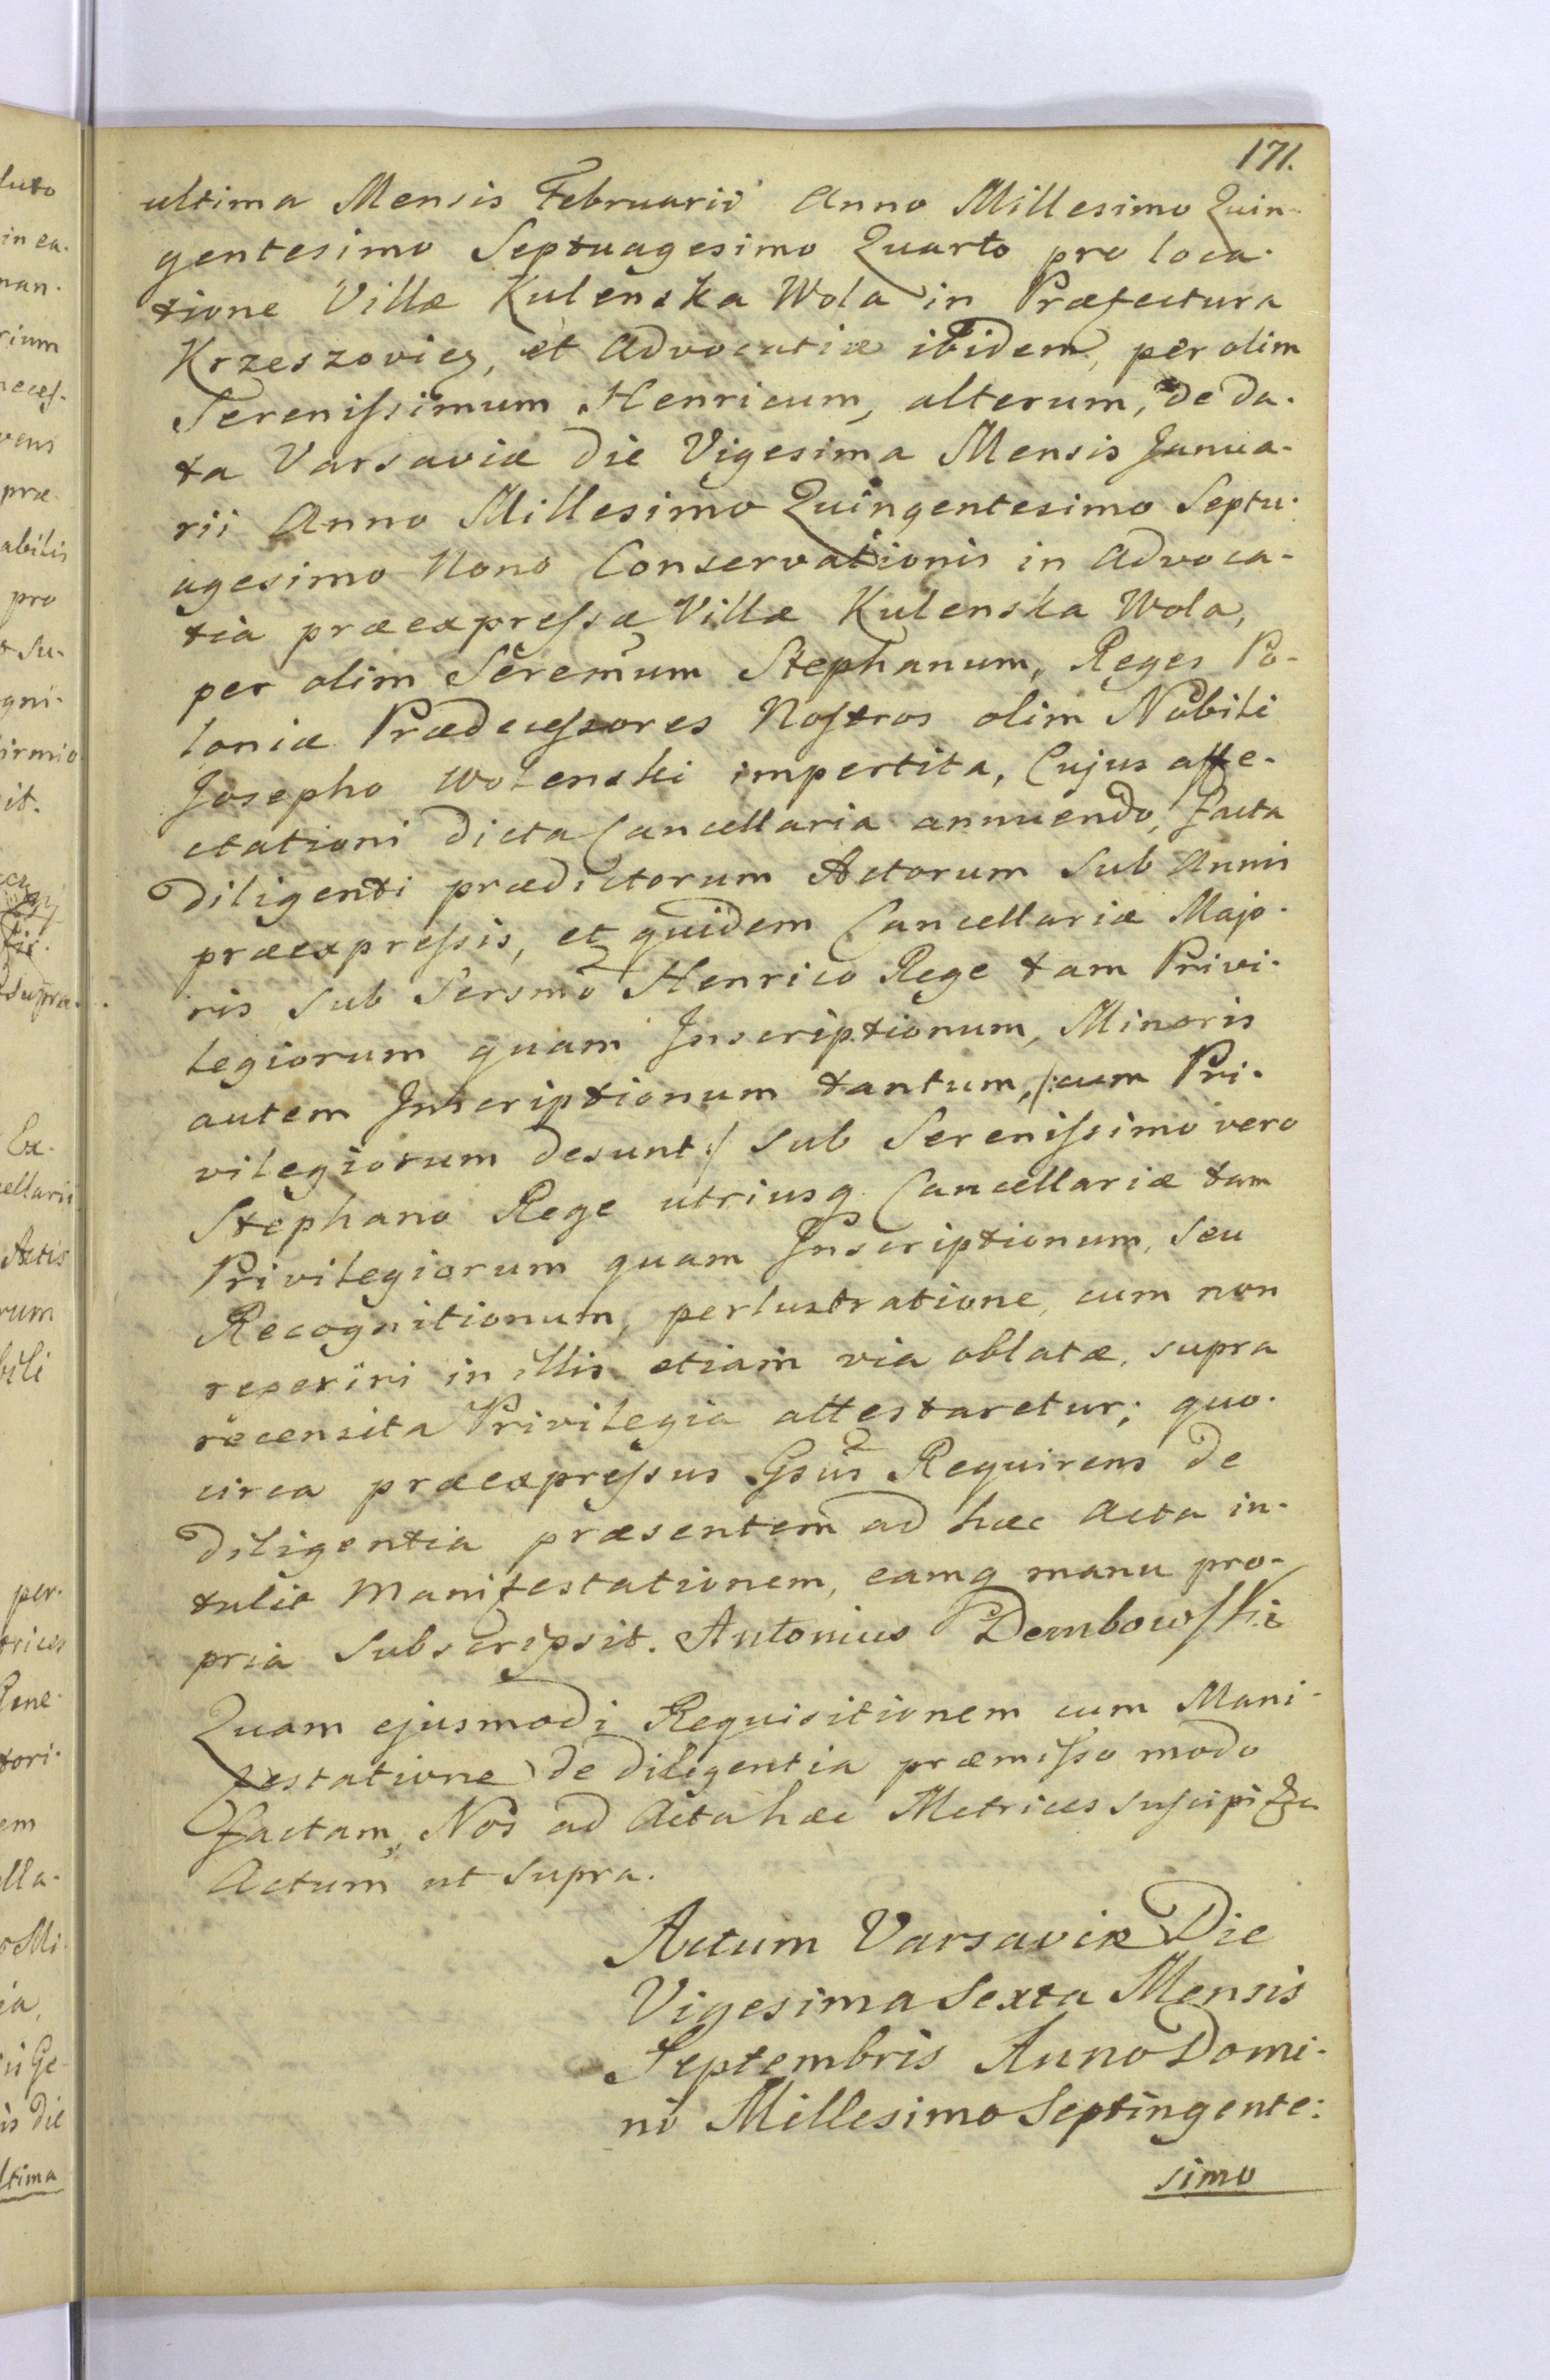 171.
ultima Mensis Februarii Anno Millesimo Quin-
gentesimo Septuagesimo Quarto pro loca-
tione Villæ Kulenska Wola in Præfectura
Krzeszoviey, et Advocatiæ ibidem, per olim
Serenissimum Henricum, alterum, de da-
ta Varsaviæ die Vigesima Mensis Janua-
rii Anno Millesimo Quingentesimo Septu-
agesimo Nono Conservationis in Advoca-
tia præexpressæ Villæ Kulenska Wola,
per olim Serenum Stephanum, Reges Po-
loniæ Prædecessores Nostros olim Nobili
Josepho Wolenski impertita, Cujus affe-
ctationi dicta Cancellaria annuendo, facta
diligenti prædictorum Actorum sub Annis
præexpressis, et quidem Cancellariæ Majo-
ris sub Sersmo Henrico Rege tam Privi-
legiorum quam Inscriptionum, Minoris
autem Inscriptionum tantum, /:cum Pri-
vilegiorum desunt:/ sub Serenissimo vero
Stephano Rege utriusq Cancellariæ tam
Privilegiorum quam Inscriptionum, seu
Recognitionum, perlustratione, cum non
reperiri in illis etiam via oblatæ, supra
recensita Privilegia attestaretur; quo-
circa præexpressus Gsus Requirens de
diligentia præsentem ad hæc Acta in-
tulit Manifestationem, eamq manu pro-
pria subscripsit. Antonius Dembowski
Quam ejusmodi Requisitionem cum Mani-
festatione de diligentia præmisso modo
factam, Nos ad Acta hæc Metrices suscipi
Actum ut supra.
Actum Varsaviæ Die
Vigesima Sexta Mensis
Septembris Anno Domi-
ni Millesimo Septingente:
simo